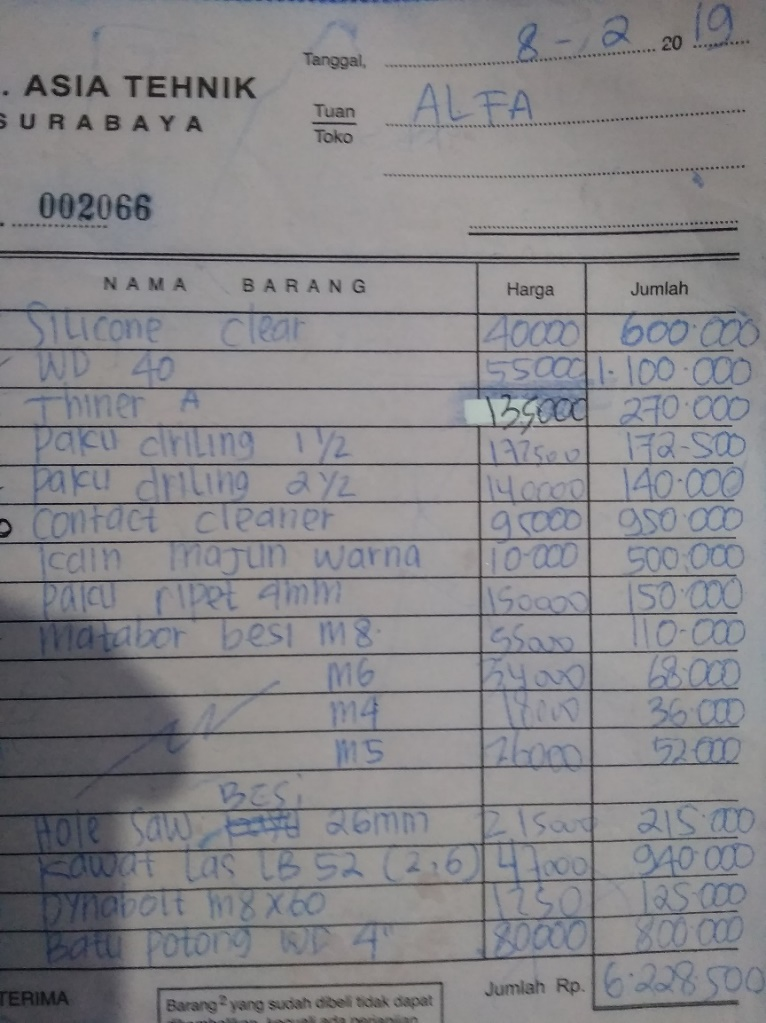 Tanggal, 8 - 2 20 19
. ASIA TEHNIK
SURABAYA
Tuan
Toko
ALFA
002066
NAMA BARANG Harga Jumlah
Silicone clear 40000 600.000
WD 40 55000 1.100.000
Thiner A 135000 270.000
paku driling 1 1/2 172500 172-500
paku driling 2 1/2 140000 140.000
contact cleaner 95000 950.000
kain majun warna 10.000 500.000
paku ripet 4mm 150000 150.000
matabor besi m8. 55000 110.000
m6 34000 68.000
m4 18000 36.000
m5 26000 52.000
BESI
Hole saw 26mm 215000 215.000
Kawat Las LB 52 (2,6) 47000 940.000
Dynabolt m8x60 1250 125.000
Batu potong WD 4" 80000 800.000
TERIMA
Jumlah Rp. 6.228.500
Barang² yang sudah dibeli tidak dapat